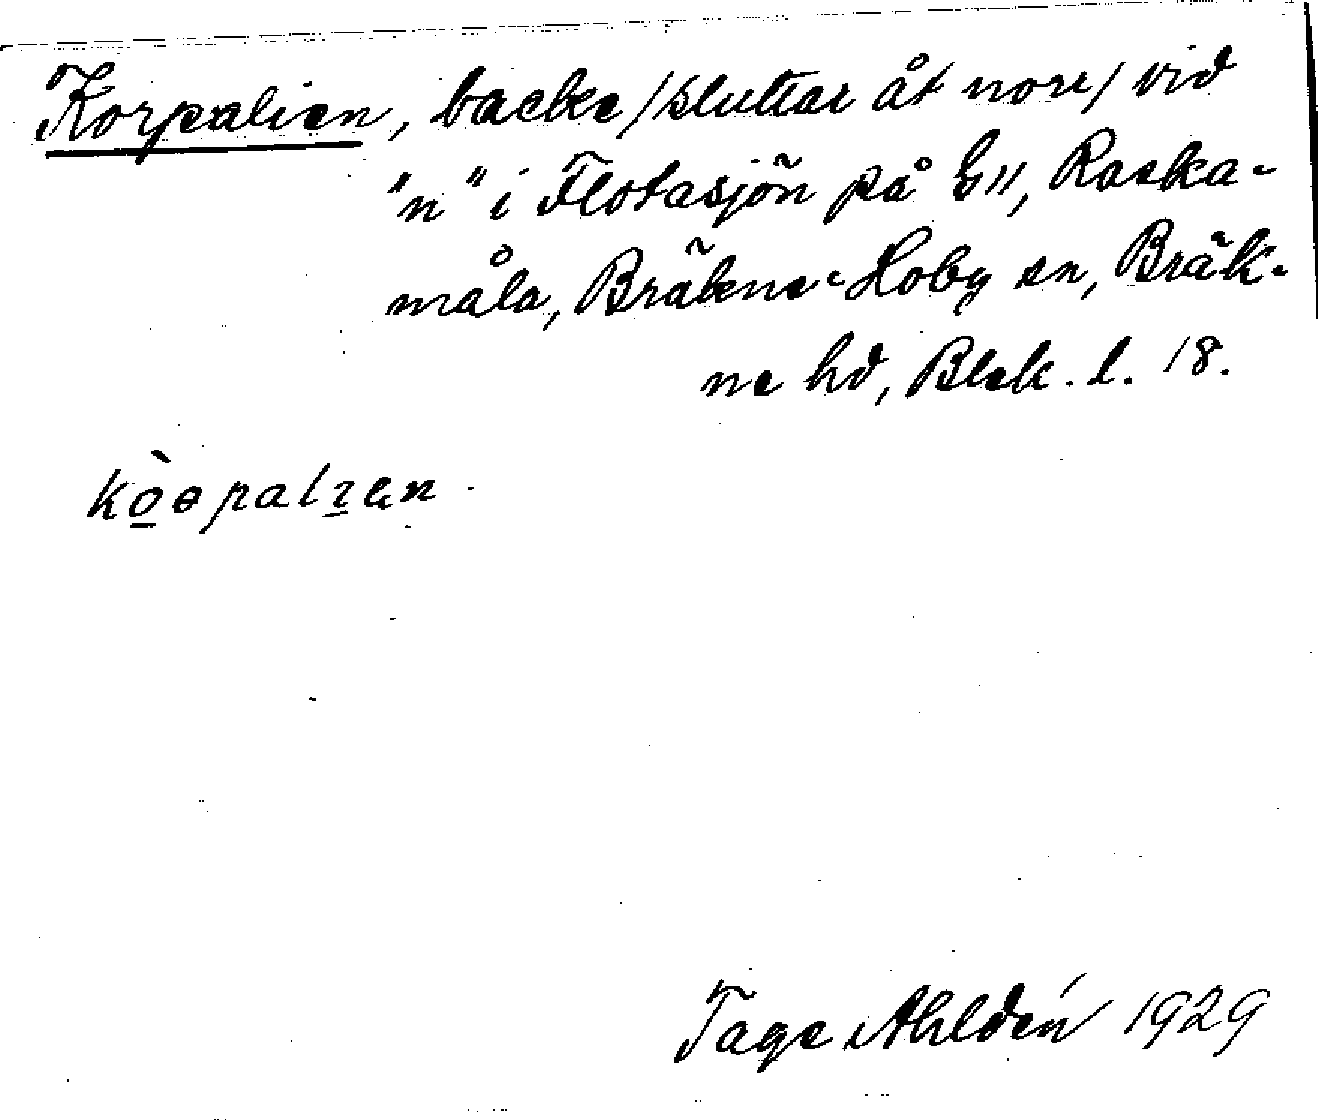 Korpalien, backe /sluttar åt norr/ vid
"n" i Flotasjön på G11, Racka-
måla, Bräkne-Hoby sn, Bräk-
ne hd, Blek. l. 18.
kò̠ɵpalɪ̠en
Tage Ahldén 1929